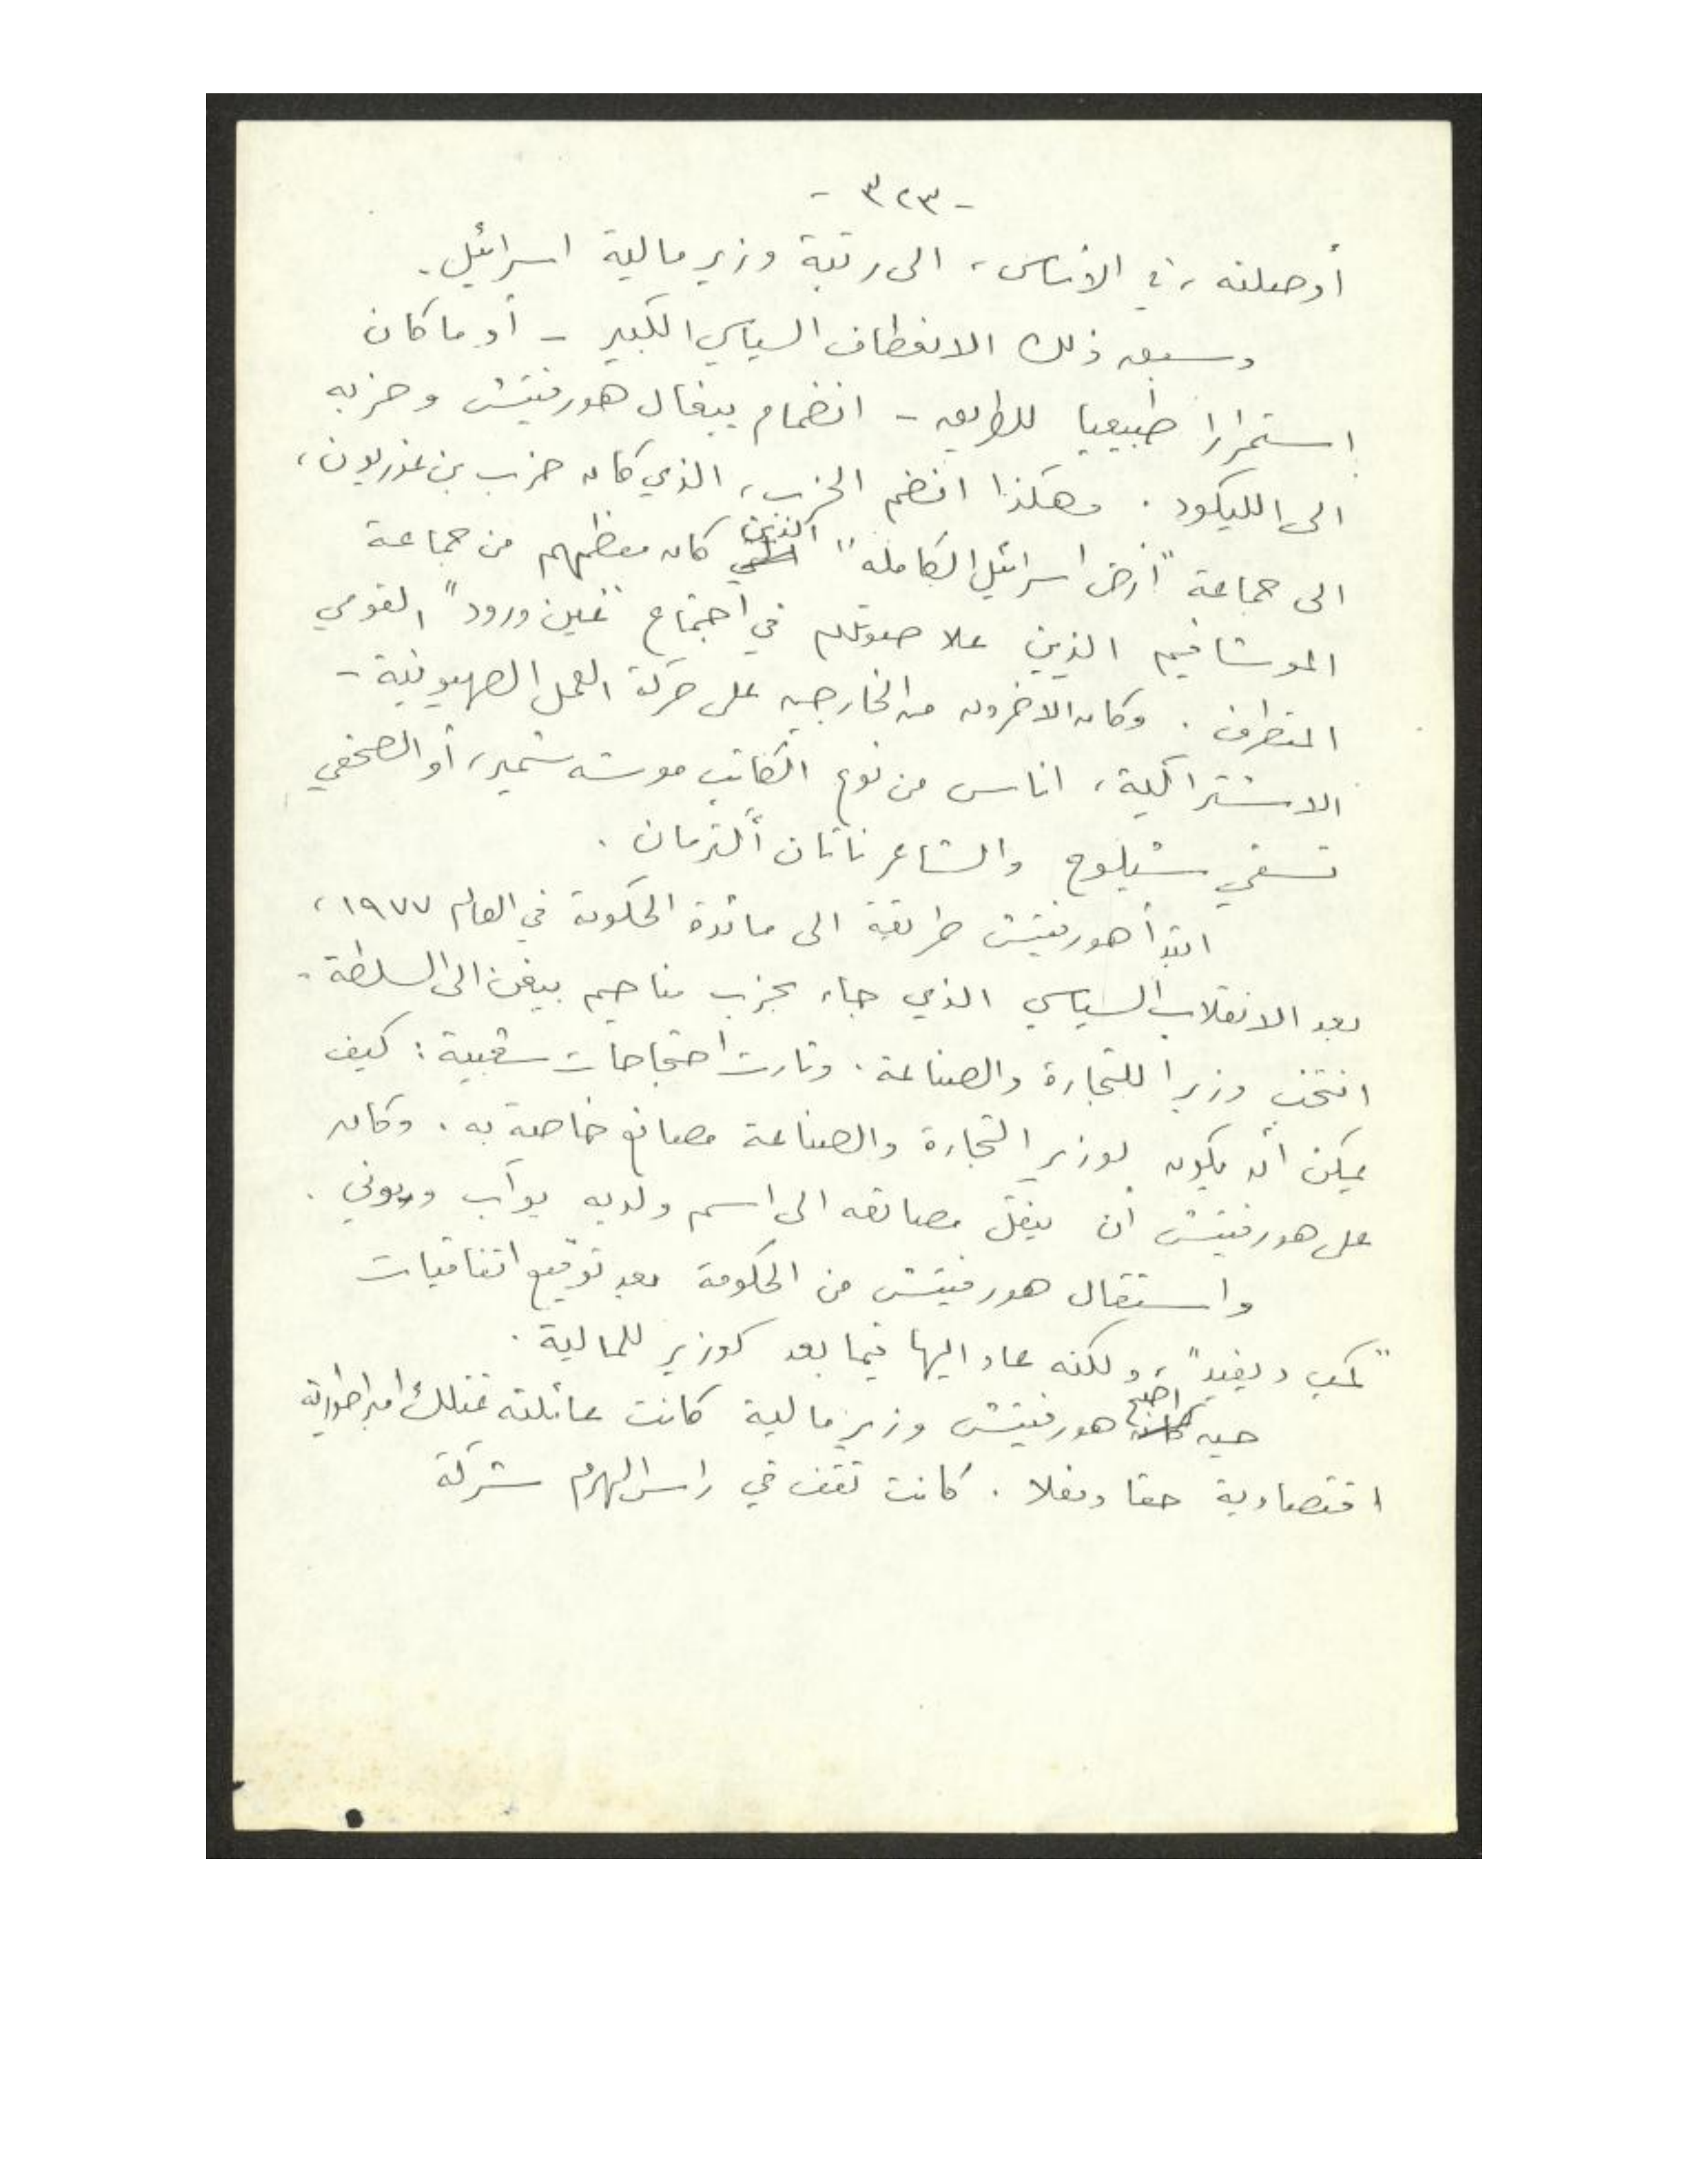 - ٣٢٣ -
أوصلته ، في الأساس ، الى رتبة وزير مالية اسرائيل .
وسبق ذلك الانعطاف السياسي الكبير - أو ما كان
استمرارا طبيعيا للطريق - انضمام ييغال هورفيتش وحزبه
الى الليكود . وهكذا انضم الحزب ، الذي كان حزب بن غوريون ،
الى جماعة "أرض اسرائيل الكاملة" الذين كان معظمهم من جماعة
الموشافيم الذين علا صوتهم في اجتماع "عين ورود" القومي
المتطرف . وكان الآخرون من الخارجين على حركة العمل الصهيونية -
الاشتراكية ، اناس من نوع الكاتب موشه شمير ، أو الصحفي
تسفي شيلوح والشاعر ناتان ألترمان .
ابتدأ هورفيتش طريقة الى مائدة الحكومة في العام ١٩٧٧ ،
بعد الانقلاب السياسي الذي جاء بحزب مناحيم بيغن الى السلطة .
انتخب وزيرا للتجارة والصناعة . وثارت احتجاجات شعبية : كيف
يمكن أن يكون لوزير التجارة والصناعة مصانع خاصة به . وكان
على هورفيتش أن ينقل مصانعه الى اسم ولديه يوآب وروني .
واستقال هورفيتش من الحكومة بعد توقيع اتفاقيات
"كمب ديفيد" ، ولكنه عاد اليها فيما بعد كوزير للمالية .
حين اصبح هورفيتش وزير مالية كانت عائلته تمتلك امبراطورية
اقتصادية حقا وفعلا . كانت تقف في راس الهرم شركة